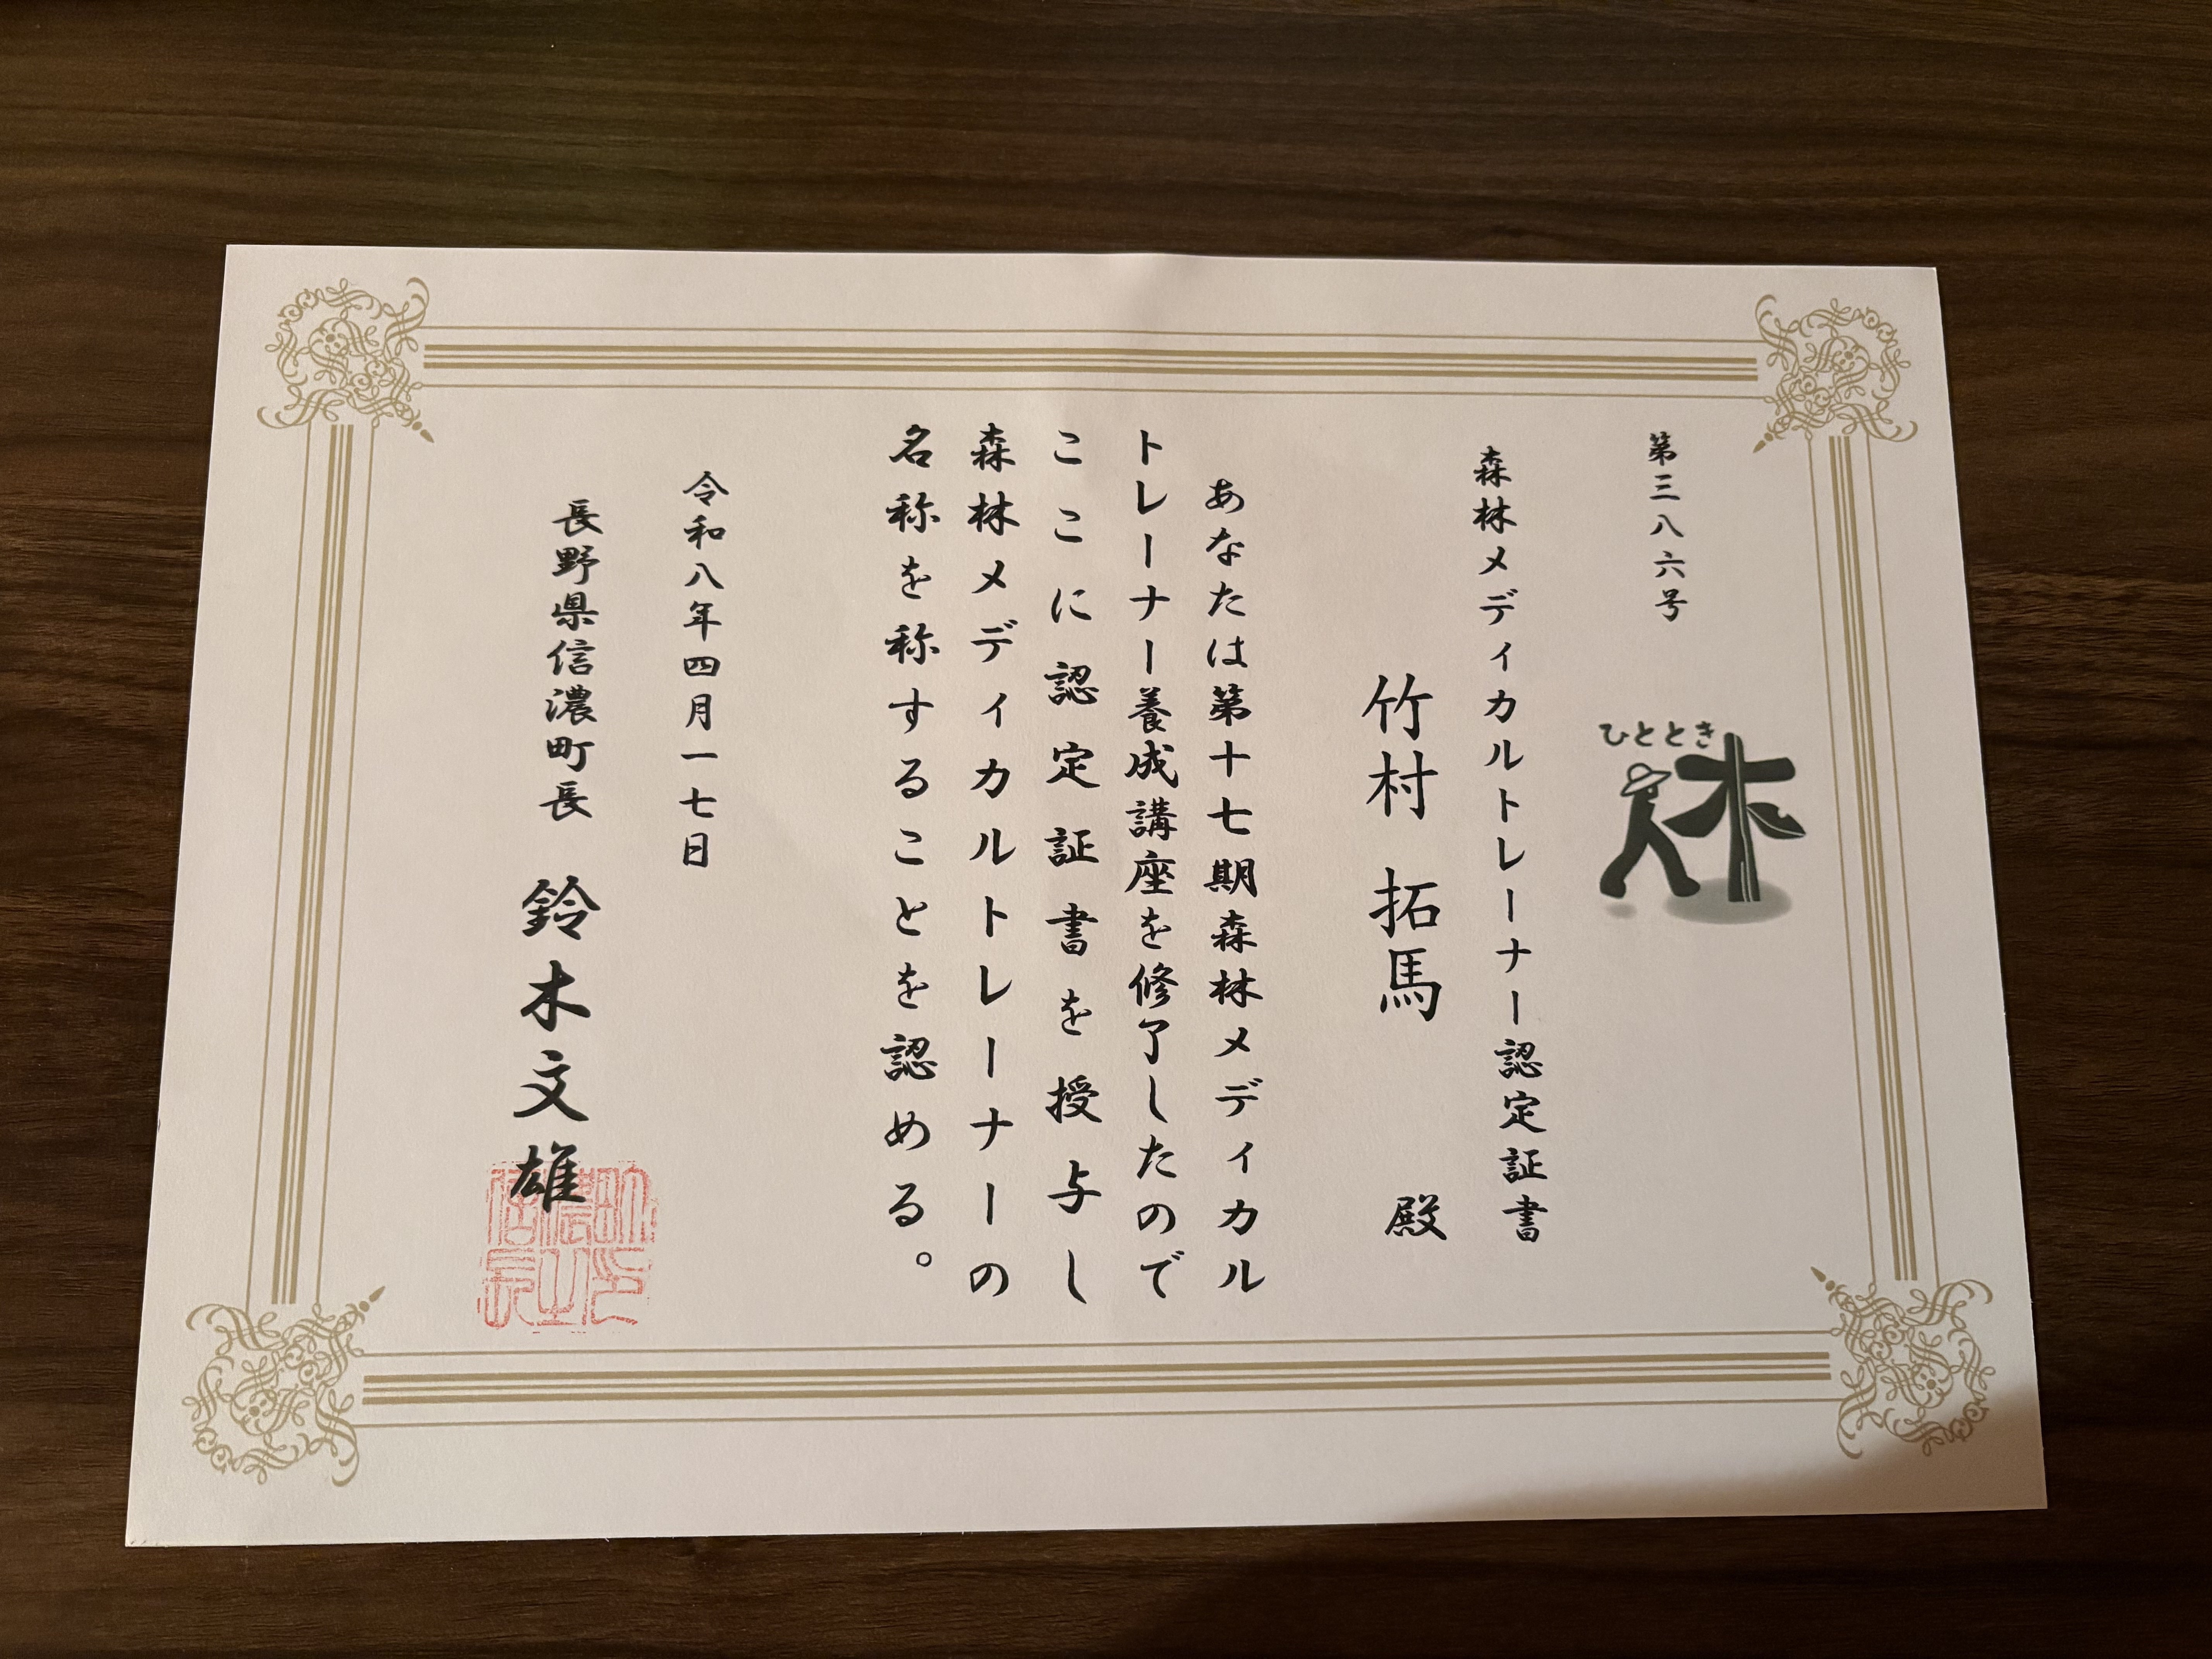 第三八六号
ひととき
森林メディカルトレーナー認定証書
竹村 拓馬 殿
あなたは第十七期森林メディカル
トレーナー養成講座を修了したので
ここに認定証書を授与し
森林メディカルトレーナーの
名称を称することを認める。
令和八年四月一七日
長野県信濃町長 鈴木文雄
信濃町長之印